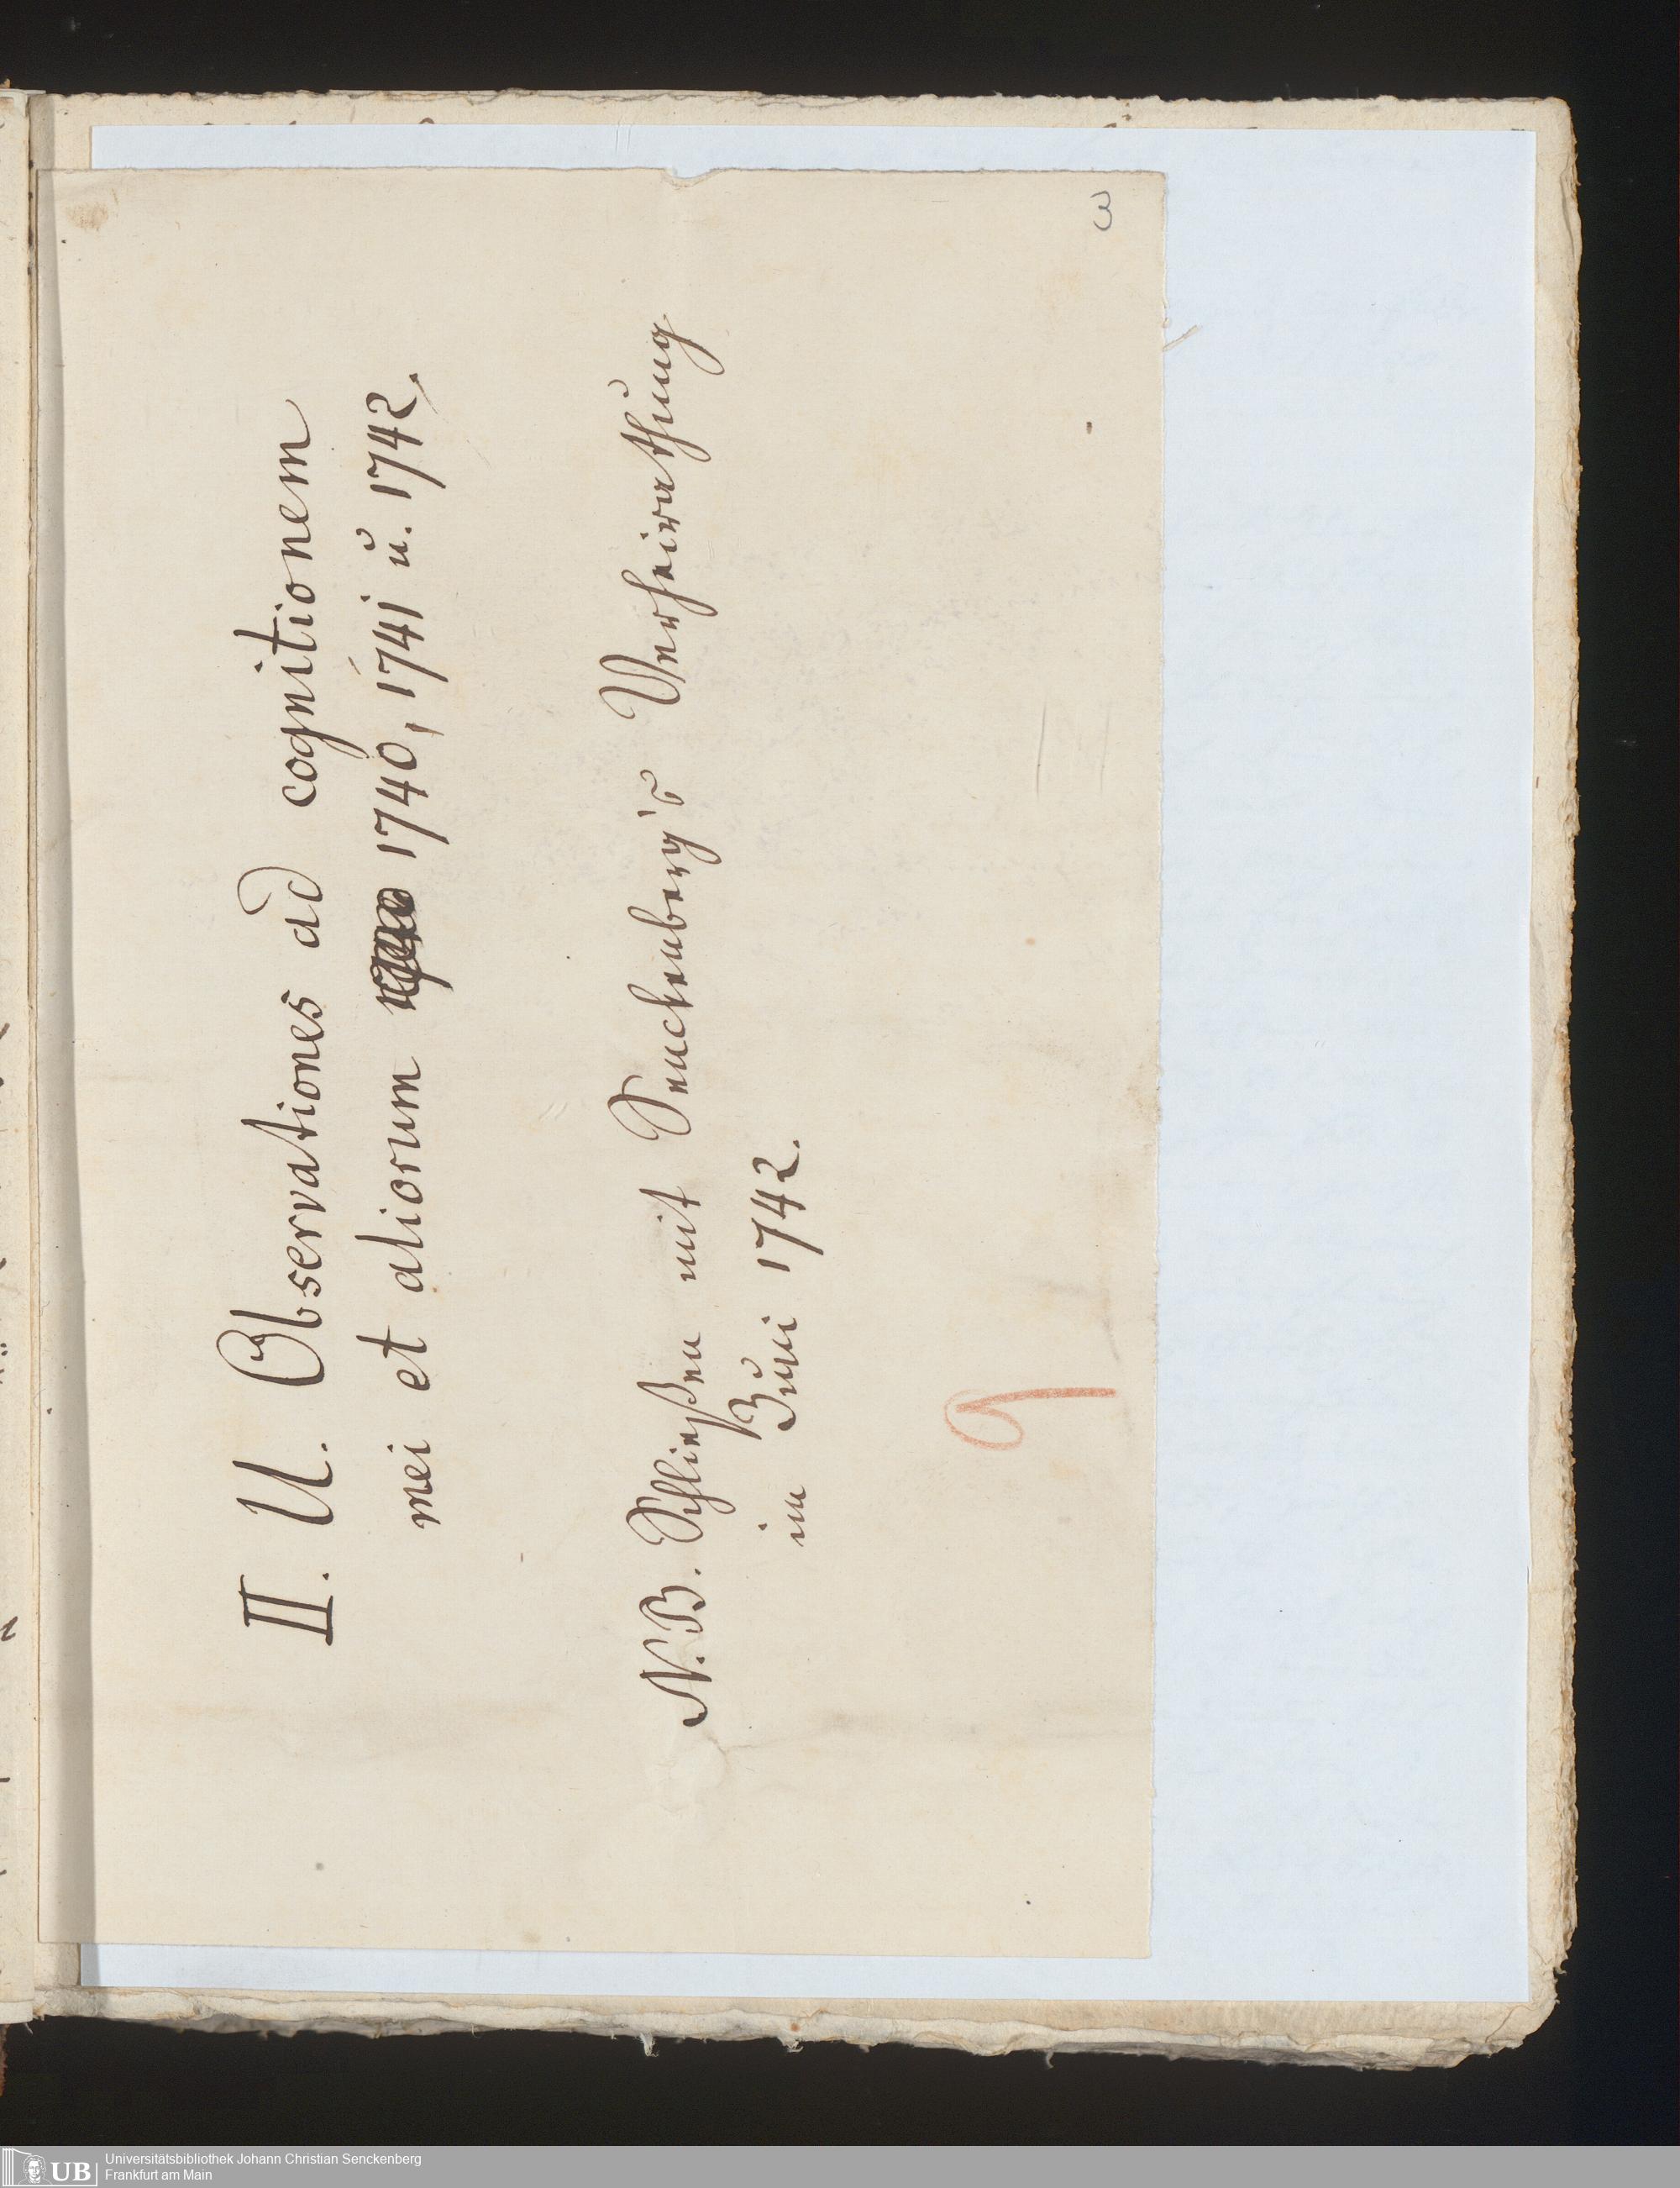 3
II. U. Observationes ad cognitionem
mei et aliorum 1740, 1741 u. 1742.
N.B. Schließen mit Senckenberg's Verheirathung
im Juni 1742.
9
Universitätsbibliothek Johann Christian Senckenberg
UB Frankfurt am Main